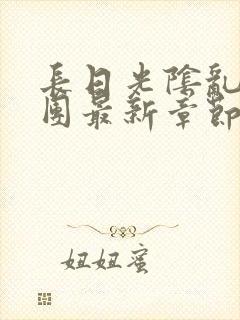 長日光陰亂
團最新章節
妞妞蜜